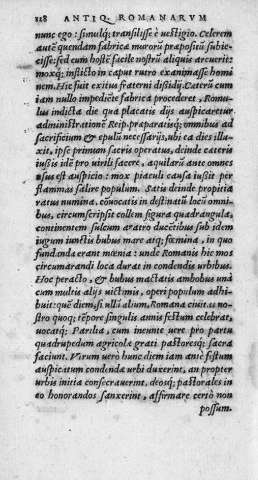 118 ANTIQ. ROMANARVM
nunc ego: simulq; transilisse è uestigio. Celerem
autē quendam fabricæ murorū præpositū subie-
cisse: sed eum hostē facile nostrū aliquis arcuerit:
moxq; inflicto in caput rutro exanimasse homi
nem. Hic fuit exitus fraterni dissidij. Cæterū cum
iam nullo impediēte fabrica procederet, Romu-
lus indicta die qua placatis dijs auspicaretur
administrationē Reip. præparatisq; omnibus ad
sacrificium & epulū necessarijs, ubi ea dies illu-
xit, ipse primum sacris operatus, deinde cæteris
iussis idē pro uirili facere, aquilarū ante omnes
usus est auspicio: mox piaculi causa iussit per
flammas salire populum. Satis deinde propitia
ratus numina, cōuocatis in destinatū locū omni-
bus, circumscripsit collem figura quadrangula,
continentem sulcum aratro ducētibus sub idem
iugum iunctis bubus mare atq; fœmina, in quo
fundanda erant mœnia: unde Romanis hic mos
circumarandi loca durat in condendis urbibus.
Hoc peracto, & bubus mactatis ambobus unà
cum multis alijs uictimis, operi populum adhi-
buit: quē diem, si ullū alium, Romana ciuitas no-
stro quoq; tēpore singulis annis festum celebrat,
uocatq; Parilia, cum ineunte uere pro partu
quadrupedum agricolæ grati pastoresq; sacra
faciunt. Vtrum uerò hunc diem iam antè festum
auspicatum condendæ urbi duxerint, an propter
urbis initia consecrauerint, deosq; pastorales in
eo honorandos sanxerint, affirmare certò non
possum.